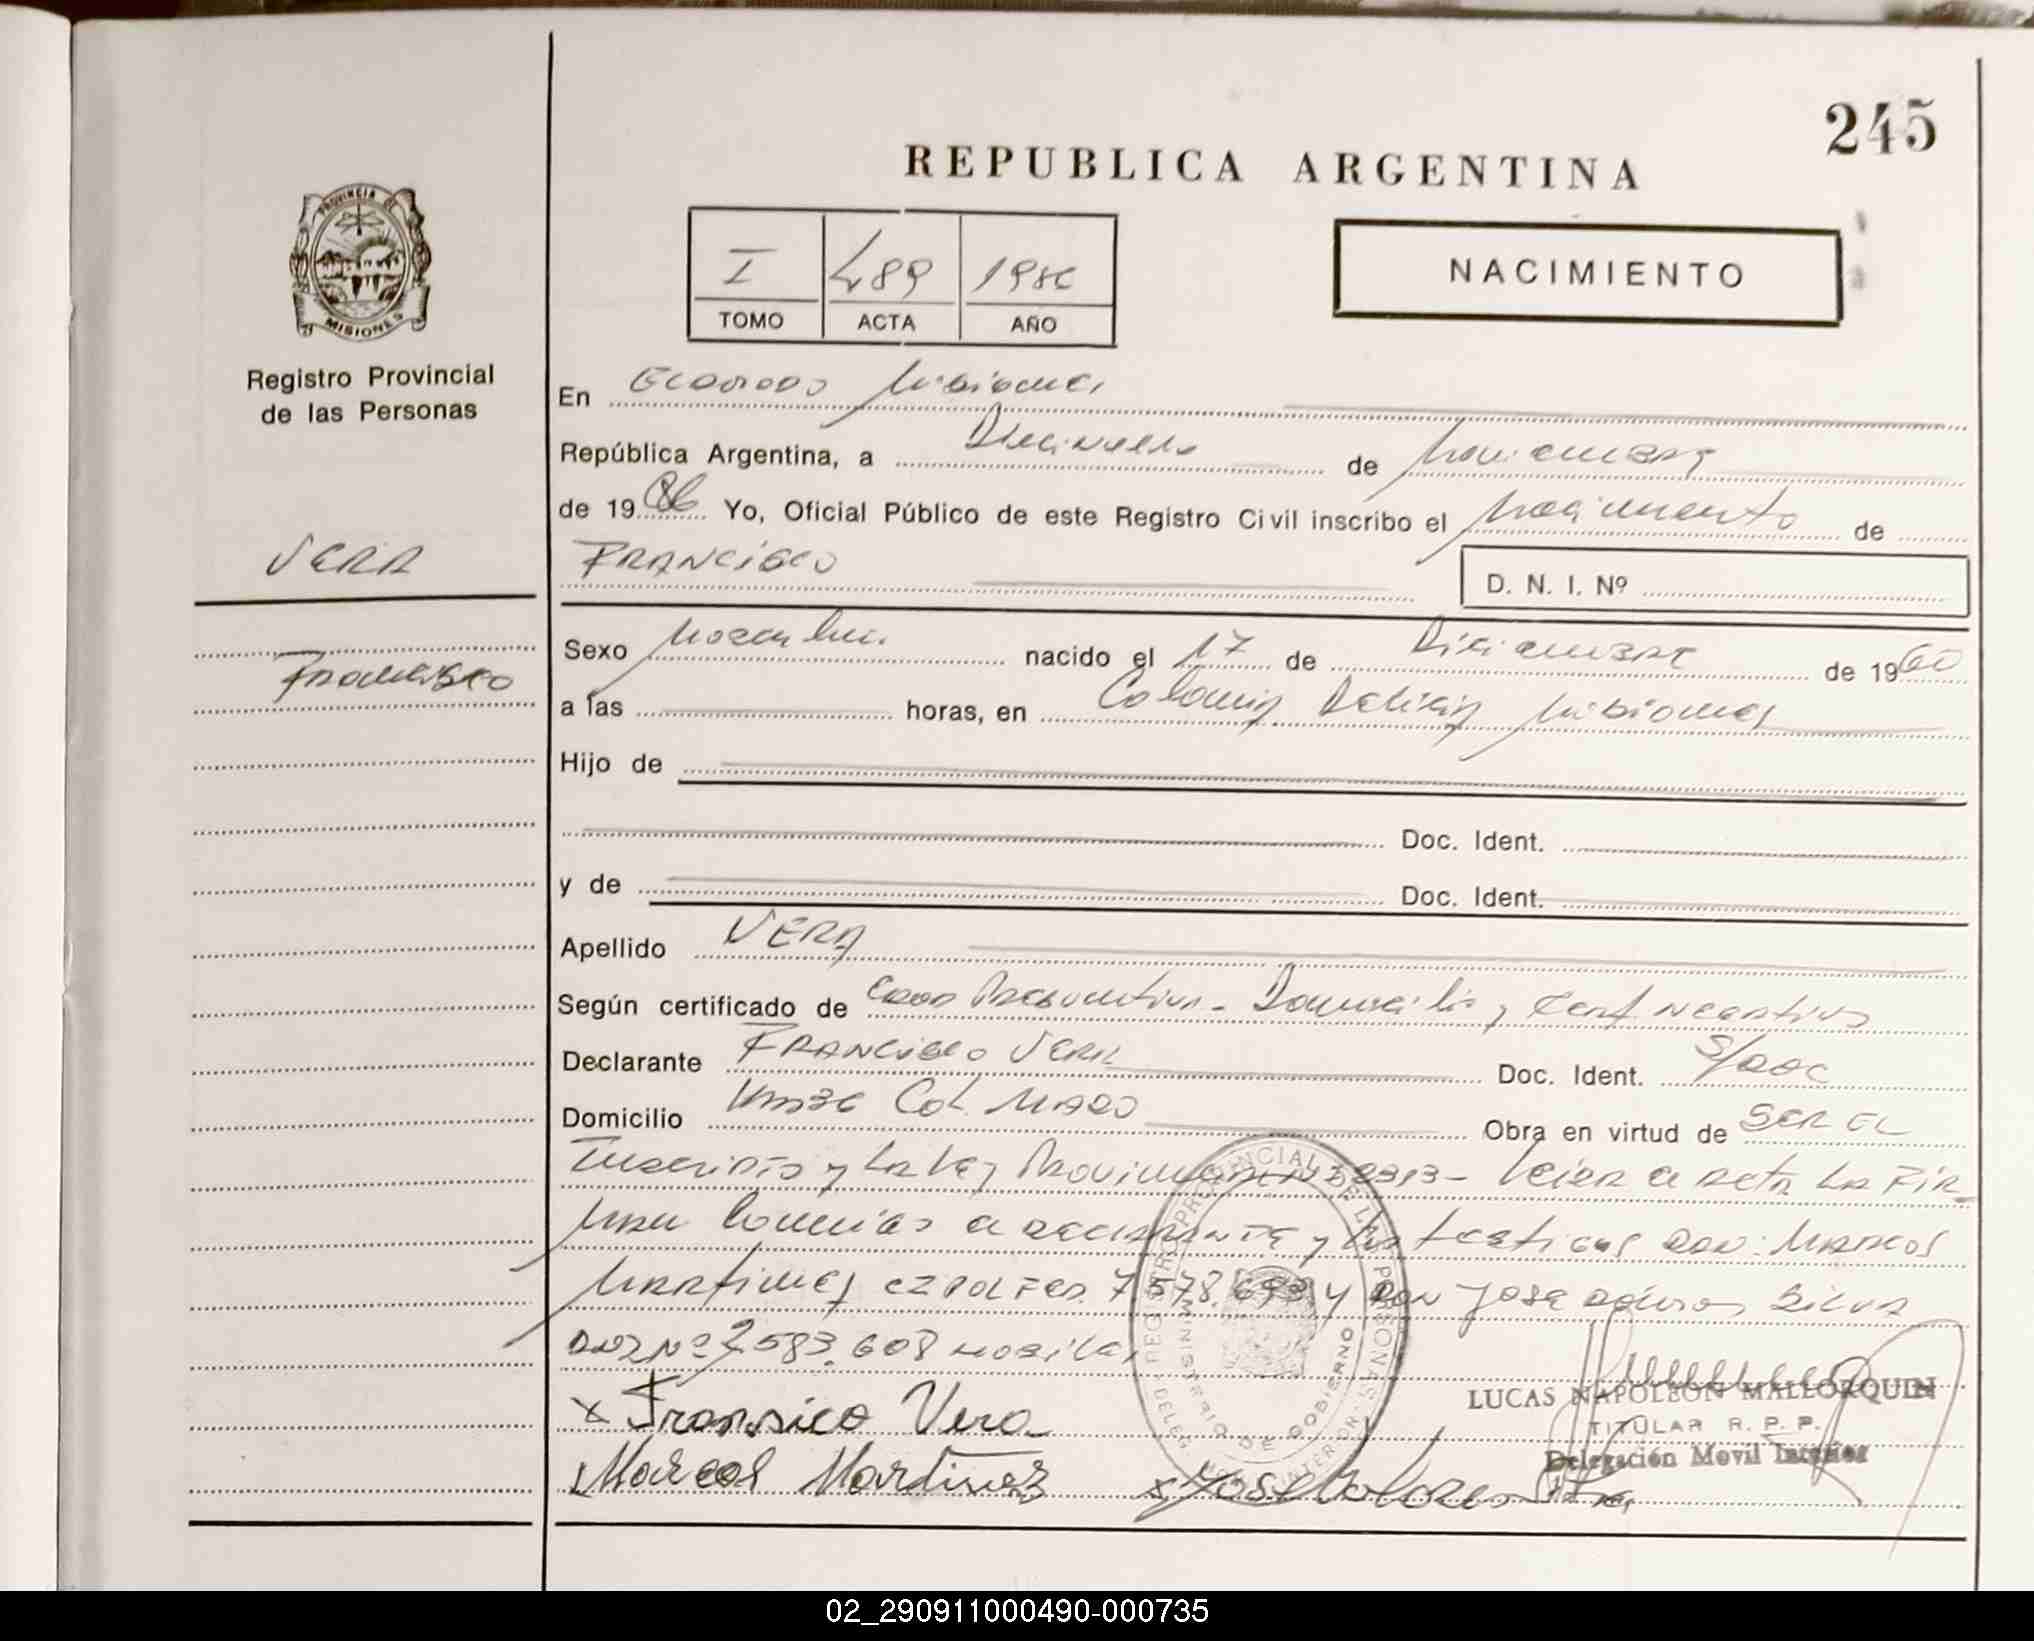 245
REPUBLICA ARGENTINA
PROVINCIA DE
MISIONES
I 489 1986
TOMO ACTA AÑO
NACIMIENTO
Registro Provincial
de las Personas
En Eldorado Misiones
República Argentina, a Diecinueve de Noviembre
de 1986 Yo, Oficial Público de este Registro Civil inscribo el Nacimiento de
VERA
FRANCISCO
D. N. I. Nº
Francisco
Sexo Masculino nacido el 17 de Diciembre de 1960
a las horas, en Colonia Delicia Misiones
Hijo de
Doc. Ident.
y de Doc. Ident.
Apellido VERA
Según certificado de Edad Presuntiva - Domicilio y Cert Negativo
Declarante FRANCISCO VERA Doc. Ident. S/DOC
Domicilio Col. MADO Obra en virtud de SER EL
Inscripto y La Ley Provincial Nº 2313 - Leída el acta La FIR
man conmigo el declarante y los testigos Don: Marcos
Martinez 7.578.693 y Don Jose Silva
DNI Nº 7.583.608
x Fransico Vera
Marcos Martinez
x Jose
REGISTRO PROVINCIAL DE LAS PERSONAS
MINISTERIO DE GOBIERNO
LUCAS NAPOLEON MALLORQUIN
TITULAR R. P. P.
Delegación Movil Interior
02_290911000490-000735